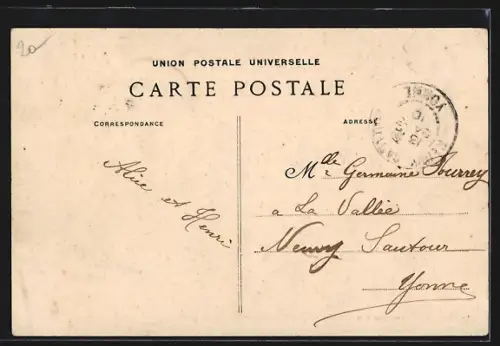 20
UNION POSTALE UNIVERSELLE
CARTE POSTALE
CORRESPONDANCE
ADRESSE
Alice et Henri
Mlle Germaine Pourrey
a La Vallée
Neuvy Sautour
Yonne
YONNE